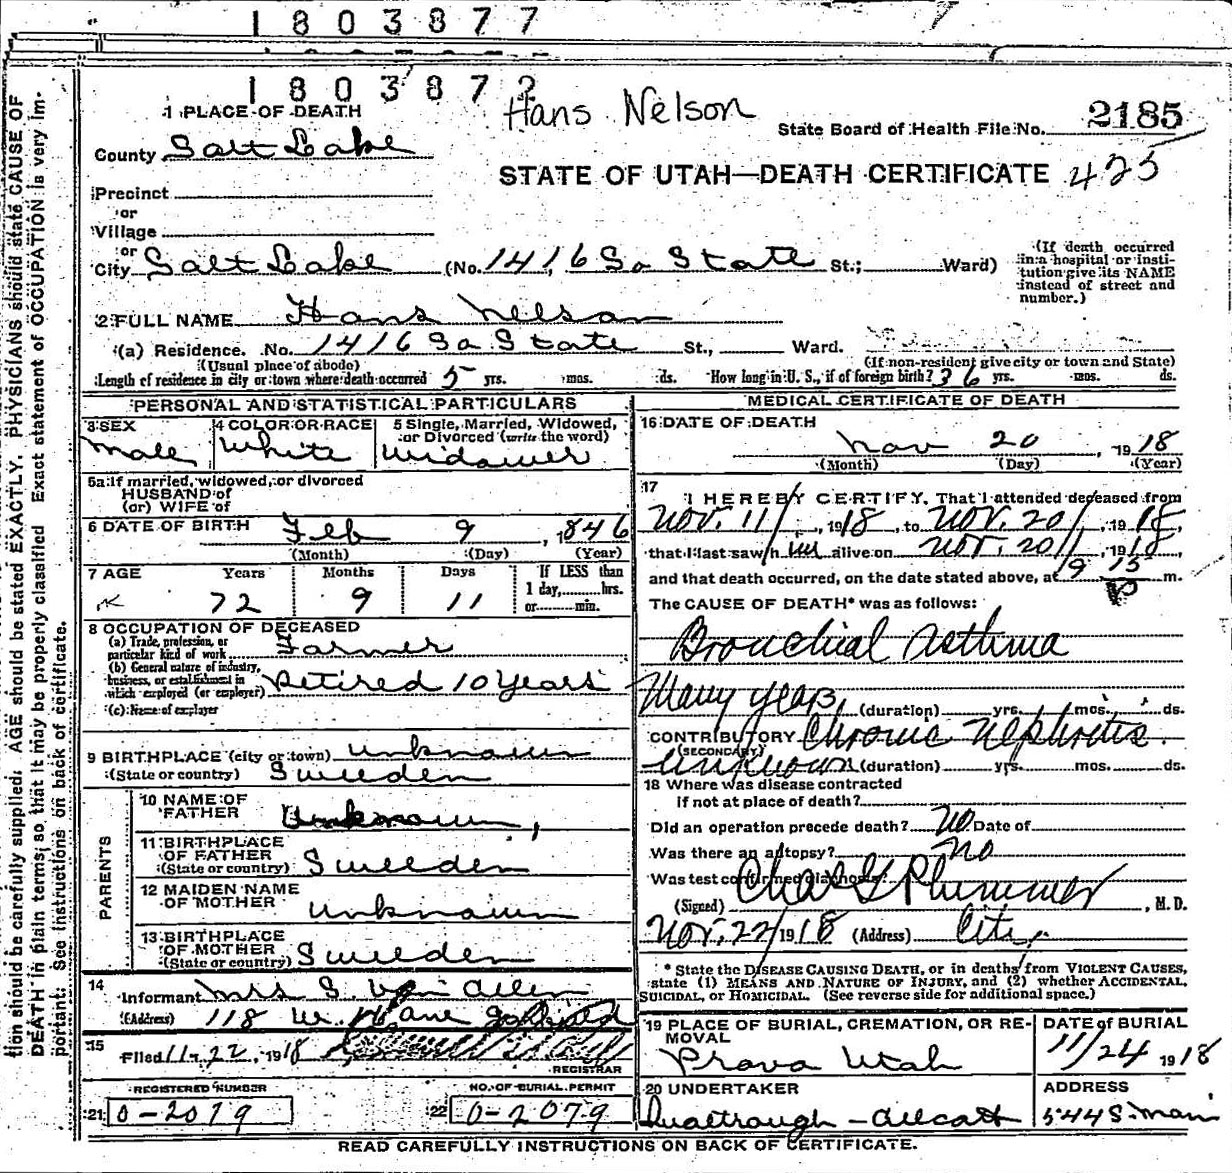 1803877
1803872
Hans Nelson
1 PLACE OF DEATH
State Board of Health File No. 2185
County Salt Lake
STATE OF UTAH—DEATH CERTIFICATE 425
Precinct
or
Village
or
City Salt Lake (No. 1416 So State St.; Ward)
(If death occurred in a hospital or institution give its NAME instead of street and number.)
2 FULL NAME Hans Nelson
(a) Residence. No. 1416 So State St., Ward.
(Usual place of abode) (If non-resident give city or town and State)
Length of residence in city or town where death occurred 5 yrs. mos. ds. How long in U. S., if of foreign birth? 36 yrs. mos. ds.
PERSONAL AND STATISTICAL PARTICULARS
3 SEX
Male
4 COLOR OR RACE
White
5 Single, Married, Widowed, or Divorced (write the word)
Widower
5a If married, widowed, or divorced
HUSBAND of
(or) WIFE of
6 DATE OF BIRTH Feb 9, 1846
(Month) (Day) (Year)
7 AGE Years Months Days If LESS than
1 day, hrs.
or min.
72 9 11
8 OCCUPATION OF DECEASED
(a) Trade, profession, or particular kind of work Farmer
(b) General nature of industry, business, or establishment in which employed (or employer) Retired 10 Years
(c) Name of employer
9 BIRTHPLACE (city or town) Unknown
(State or country) Sweeden
PARENTS
10 NAME OF FATHER Unknown,
11 BIRTHPLACE OF FATHER (State or country) Sweeden
12 MAIDEN NAME OF MOTHER Unknown
13 BIRTHPLACE OF MOTHER (State or country) Sweeden
14
Informant Mrs S.
(Address) 118 W.
15
Filed 11-22, 1918
REGISTRAR
REGISTERED NUMBER
21 0-2079
NO. OF BURIAL PERMIT
22 0-2079
MEDICAL CERTIFICATE OF DEATH
16 DATE OF DEATH
Nov 20, 1918
(Month) (Day) (Year)
17
I HEREBY CERTIFY, That I attended deceased from
Nov. 11/, 1918, to Nov. 20/, 1918,
that I last saw h im alive on Nov. 20/, 1918
and that death occurred, on the date stated above, at 9 15 P m.
The CAUSE OF DEATH* was as follows:
Bronchial Asthma
Many years (duration) yrs. mos. ds.
CONTRIBUTORY Chronic Nephritis.
(SECONDARY)
Unknown (duration) yrs. mos. ds.
18 Where was disease contracted
if not at place of death?
Did an operation precede death? No Date of
Was there an autopsy? No
Was test confirmed diagnosis?
(Signed) Chas G Plummer, M.D.
Nov. 22/1918 (Address) City.
* State the DISEASE CAUSING DEATH, or in deaths from VIOLENT CAUSES,
state (1) MEANS AND NATURE OF INJURY, and (2) whether ACCIDENTAL,
SUICIDAL, or HOMICIDAL. (See reverse side for additional space.)
19 PLACE OF BURIAL, CREMATION, OR REMOVAL
Provo Utah
DATE of BURIAL
11/24 1918
20 UNDERTAKER
ADDRESS
544 S. Main
READ CAREFULLY INSTRUCTIONS ON BACK OF CERTIFICATE.
tion should be carefully supplied. AGE should be stated EXACTLY. PHYSICIANS should state CAUSE OF
DEATH in plain terms, so that it may be properly classified. Exact statement of OCCUPATION is very im-
portant. See instructions on back of certificate.